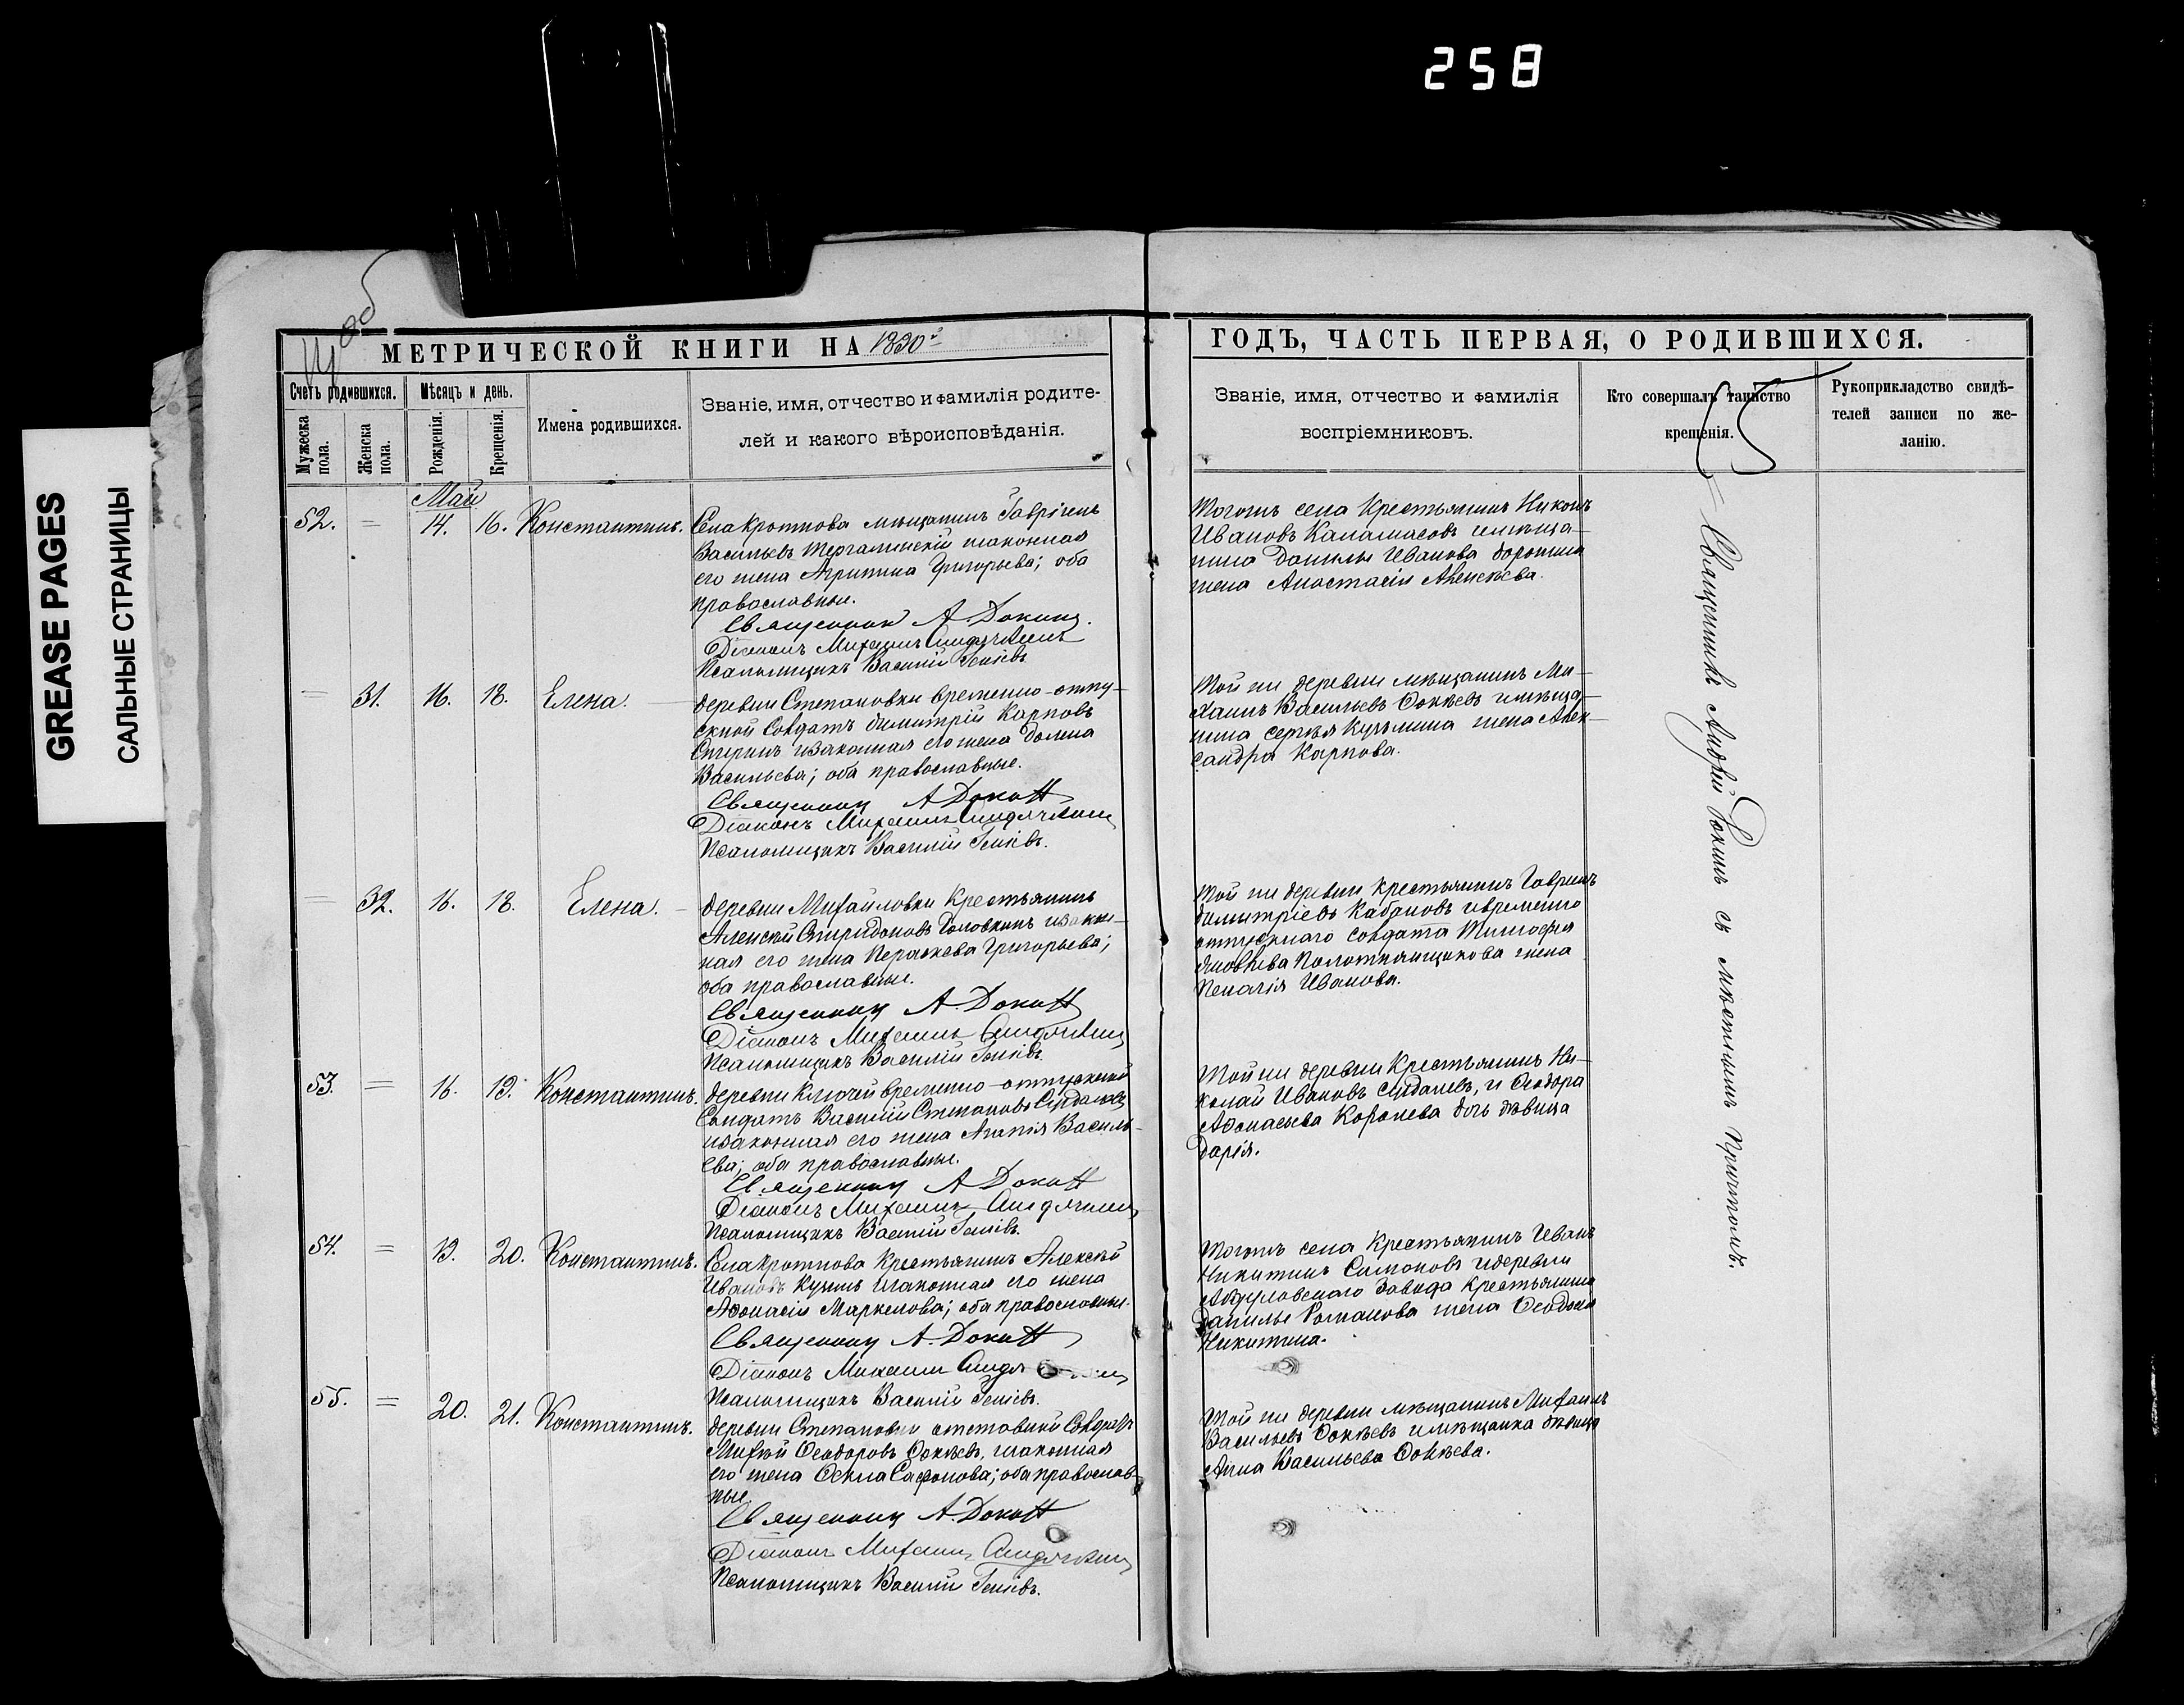 258
GREASE PAGES
САЛЬНЫЕ СТРАНИЦЫ
МЕТРИЧЕСКОЙ КНИГИ НА
ГОДЪ, ЧАСТЬ ПЕРВАЯ, О РОДИВШИХСЯ.
Счетъ родившихся.
Мужеска пола.
Женска пола.
Мѣсяцъ и день.
Рожденія.
Крещенія.
Имена родившихся.
Званіе, имя, отчество и фамилія родите-
лей и какого вѣроисповѣданія.
Званіе, имя, отчество и фамилія
воспріемниковъ.
Кто совершалъ таинство
крещенія.
Рукоприкладство свидѣ-
телей записи по же-
ланію.
Май
52. = 14. 16. Константинъ.
Села Кроткова мѣщанинъ
Васильевъ изаконная
его жена Агрипина Григорьева; оба
православные.
Священник А. Докинъ.
Діаконъ Михаилъ
Псаломщикъ Василій
Тогожъ села Крестьянинъ Никонъ
Ивановъ имѣща-
нина Данилы Иванова
жена Анастасія Алексѣева.
= 31. 16. 18. Елена.
деревни Степановки временно-отпу-
скной Солдатъ Димитрій Карповъ
изаконная его жена
Васильева; оба православные.
Священникъ А Докинъ
Діаконъ Михаилъ
Псаломщикъ Василій
Той же деревни мѣщанинъ Ми-
хаилъ Васильевъ Фокѣевъ имѣща-
нина Сергѣя Кузьмина жена Алек-
сандра Карпова.
= 32. 16. 18. Елена.
деревни Михайловки Крестьянинъ
Алексѣй Спиридоновъ Головкинъ изакон-
ная его жена Параскева Григорьева;
оба православные.
Священникъ А. Докинъ
Діаконъ Михаилъ
Псаломщикъ Василій
Той же деревни крестьянинъ Гаврилъ
Димитріевъ Кабановъ ивременно
отпускнаго солдата Тимофея
Яковлева жена
Пелагія Иванова.
53. = 16. 19. Константинъ.
деревни Ключей временно-отпускной
Солдатъ Василій Степановъ
изаконная его жена Агапія Василь-
ева; оба православные.
Священникъ А Докинъ
Діаконъ Михаилъ
Псаломщикъ Василій
Той же деревни Крестьянинъ Ни-
колай Ивановъ и Феодора
Афонасьева Королева дочь дѣвица
Дарія.
54. = 19. 20. Константинъ.
Села Кроткова Крестьянинъ Алексѣй
Ивановъ изаконная его жена
Афонасія Маркелова; оба православные.
Священникъ А. Докинъ
Діаконъ Михаилъ
Псаломщикъ Василій
Тогожъ села Крестьянинъ Иванъ
Никитинъ Симоновъ идеревни
Завода крестьянина
Данилы Романова жена Феодосія
Никитина.
55. = 20. 21. Константинъ.
деревни Степановки отставной Солдатъ
Михей Феодоровъ Фокѣевъ, изаконная
его жена Фекла Сафонова; оба православ-
ные.
Священникъ А. Докинъ
Діаконъ Михаилъ
Псаломщикъ Василій
Той же деревни мѣщанинъ Михаилъ
Васильевъ Фокѣевъ имѣщанка дѣвица
Анна Васильева Фокѣева.
Священникъ Андрей Докинъ съ мѣстнымъ причтомъ.